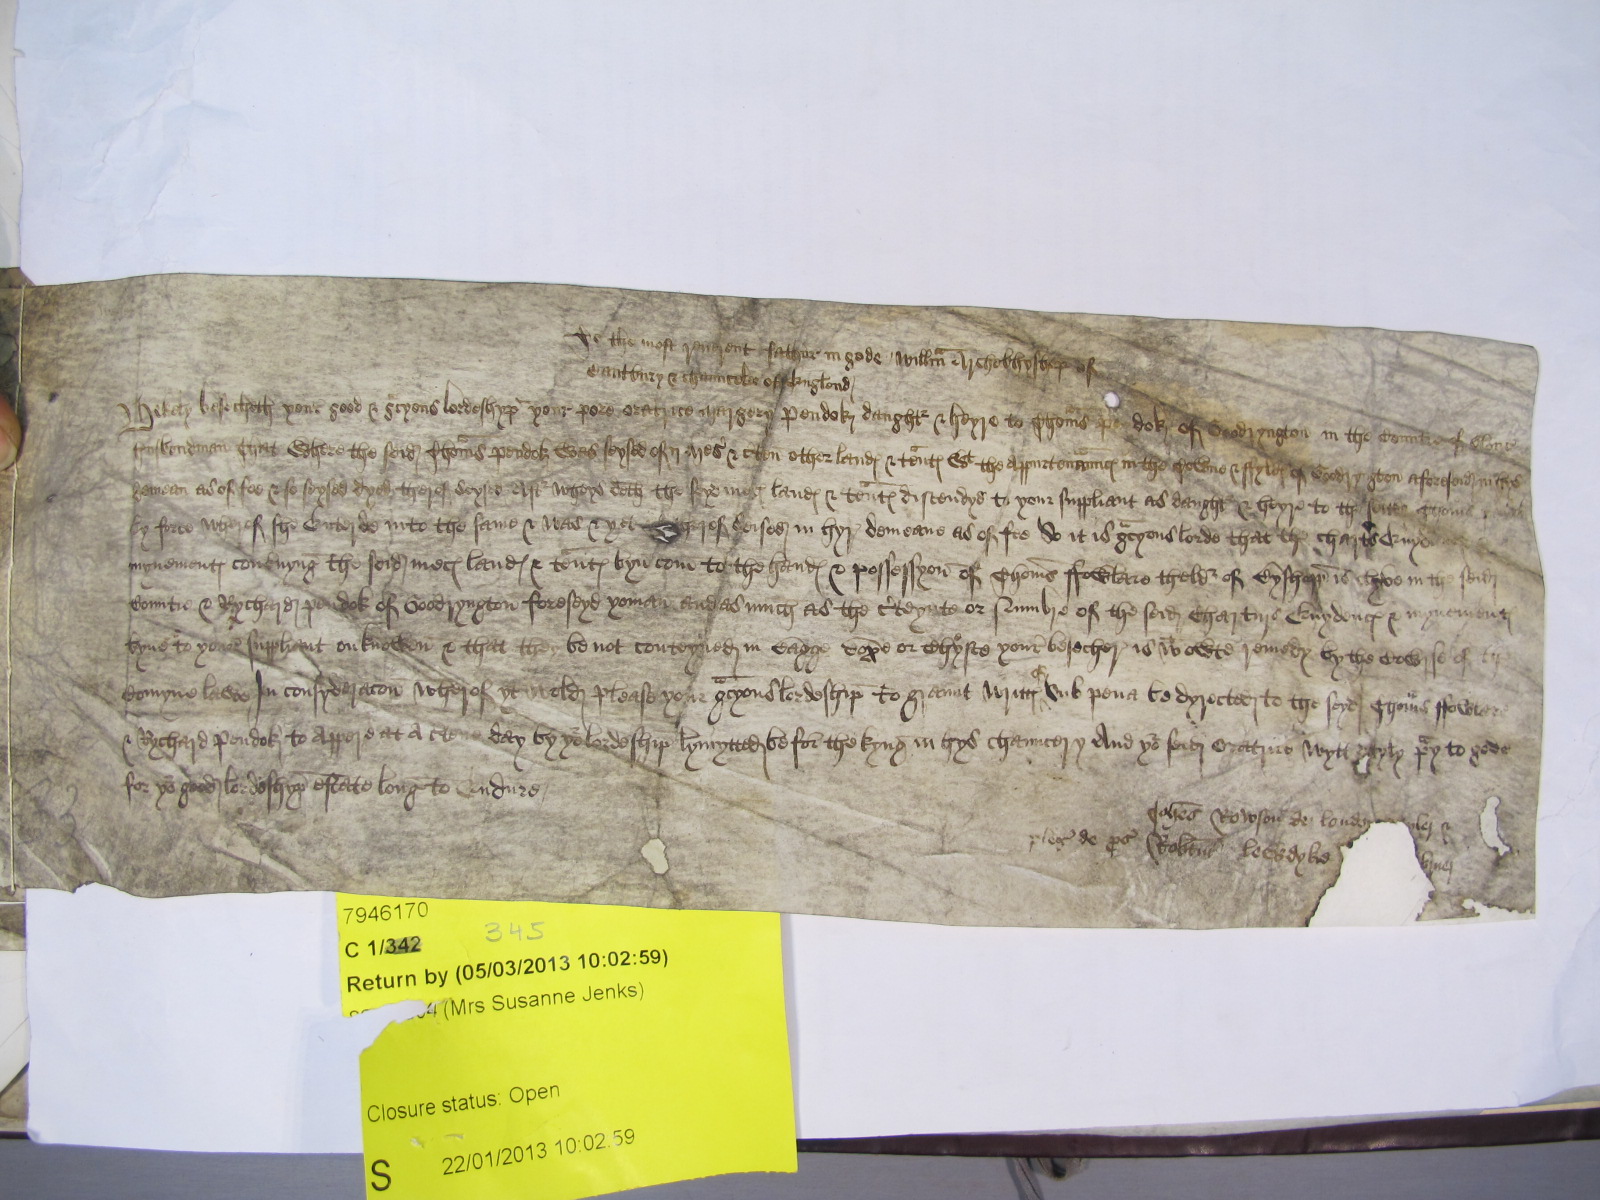 To the most reuerent fathur in gode Willm Archebbyshop of
Cantbury & chaunceler of Englond
Mekely besechith your good & gcyous lordeshypp your pore oratrice Margery Pendok daught & heyre to Thoms Pendok of Goodryngton in the Countie of Glouc
husbondman that Where the seid Thoms Pendok Was seysed of ij mes & c'ten other land & tent Wt the appurtenaunc in the Towne & fyld of Goodryngton aforeseid in hys
demean as of fee & so seysed dyed therof seysed aft Whoys deth the seyd mes land & tent discendyd to your suppliant as daught & heyre to the seid Thoms
by force Wherof she Enterde into the same & Was & yet therof seised in hyr demeane as of fee So it is gcyous lorde that the charts Euydences
mynement conc'nyng the seid mes land & tent byn com to the hand & possessyon of Thoms ffowlare theldr of Bysshopp is clyve in the seid
Countie & Rychard Pendok of Goodryngton foreseyd yoman and as much as the c'teynte or Numbre of the seid Charturs Euydenc & mynement
byne to youre suppliant onknowen & that they be not conteyned in bagge boxe or Chyste your besecher is Wtowte remedy by the cowrse of the
Comyne lawe In consyderacon Wherof yt Wold please your gcyous lordeship to graunt Writt Sub pena to be dyrected to the seyd Thoms ffowlare
& Rychard Pendok to appere at a c'ten day by yor lordeship lymytted before the kyng in hys chauncery And yor seid Oratrice Wyll dayly pray to gode
for yor good lordeshypp estate long to Endure
Johes Rowson de london &
pleg de ps Robtus leersdyke
7946170
C 1/342 345
Return by (05/03/2013 10:02:59)
(Mrs Susanne Jenks)
Closure status: Open
S 22/01/2013 10:02:59